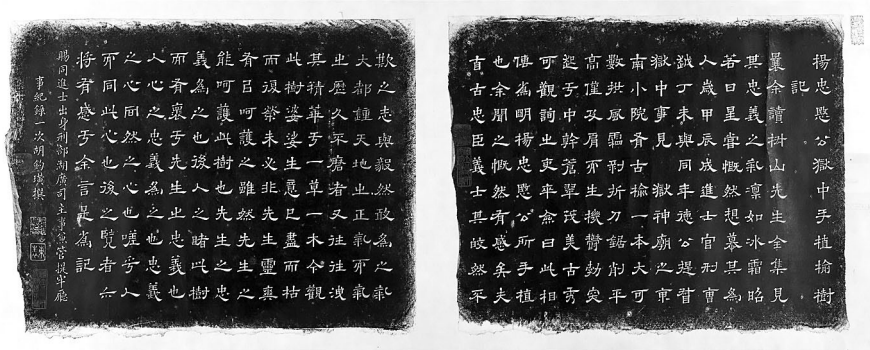 楊忠愍公獄中手植榆樹
記
曩余讀椒山先生全集見
其忠義之氣凜如冰霜昭
若日星嘗慨然想慕其為
人歲甲辰成進士官刑曹
越丁未與同年德公提督
獄中事見 獄神廟之東
南小院有古榆一本大可
數拱風霜剝折刀鋸削平
高僅及肩而生機鬱勃突
起于中幹蒼翠茂美古秀
可觀詢之吏卒僉曰此相
傳為明楊忠愍公所手植
也余聞之慨然有感矣夫
自古忠臣義士其皎然不
欺之志與毅然敢為之氣
大都鍾天地之正氣而氣
之歷久不磨者又往往洩
其精華于一草一木今觀
此樹婆娑生意已盡而枯
而復榮未必非先生靈爽
有㠯呵護之雖然先生之
能呵護此樹也先生之忠
義為之也後人之睹此樹
而有褱于先生之忠義也
人心之忠義為之也忠義
之心同然之心也嗟乎人
而同此心也後之覽者亦
將有感于余言是為記
賜同進士出身刑部湖廣司主事兼管提牢廳
事紀錄一次胡鈞璜撰